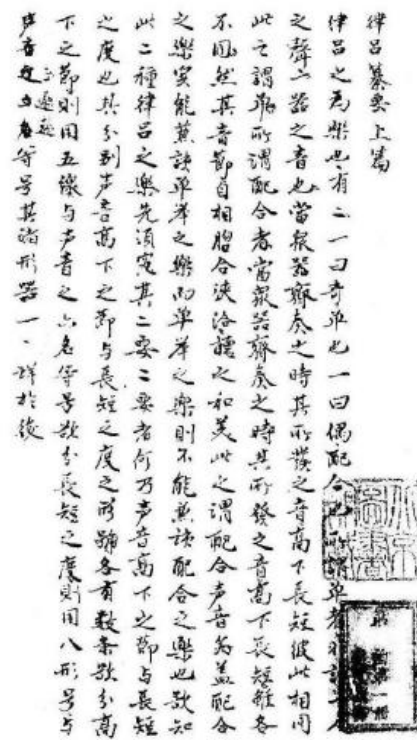 律呂纂要上篇
律呂之為樂也有二一曰奇單也一曰偶配合也所謂單者
之聲一器之音也當眾器齊奏之時其所發之音高下長短彼此相同
此之謂單所謂配合者當眾器齊奏之時其所發之音高下長短雖各
不同然其音節自相脗合浹洽聽之和美此之謂配合声音為盖配合
之樂实能兼該单举之樂而单举之樂則不能兼該配合之樂也欲知
此二種律呂之樂先須究其二要二要者何乃声音高下之節与長短
之度也其分别声音高下之節与長短之度之所號各有数条欲分高
下之節則用五線与声音之六名等号欲分長短之度則用八形号与
声音之名等号其諸形器一一詳於後